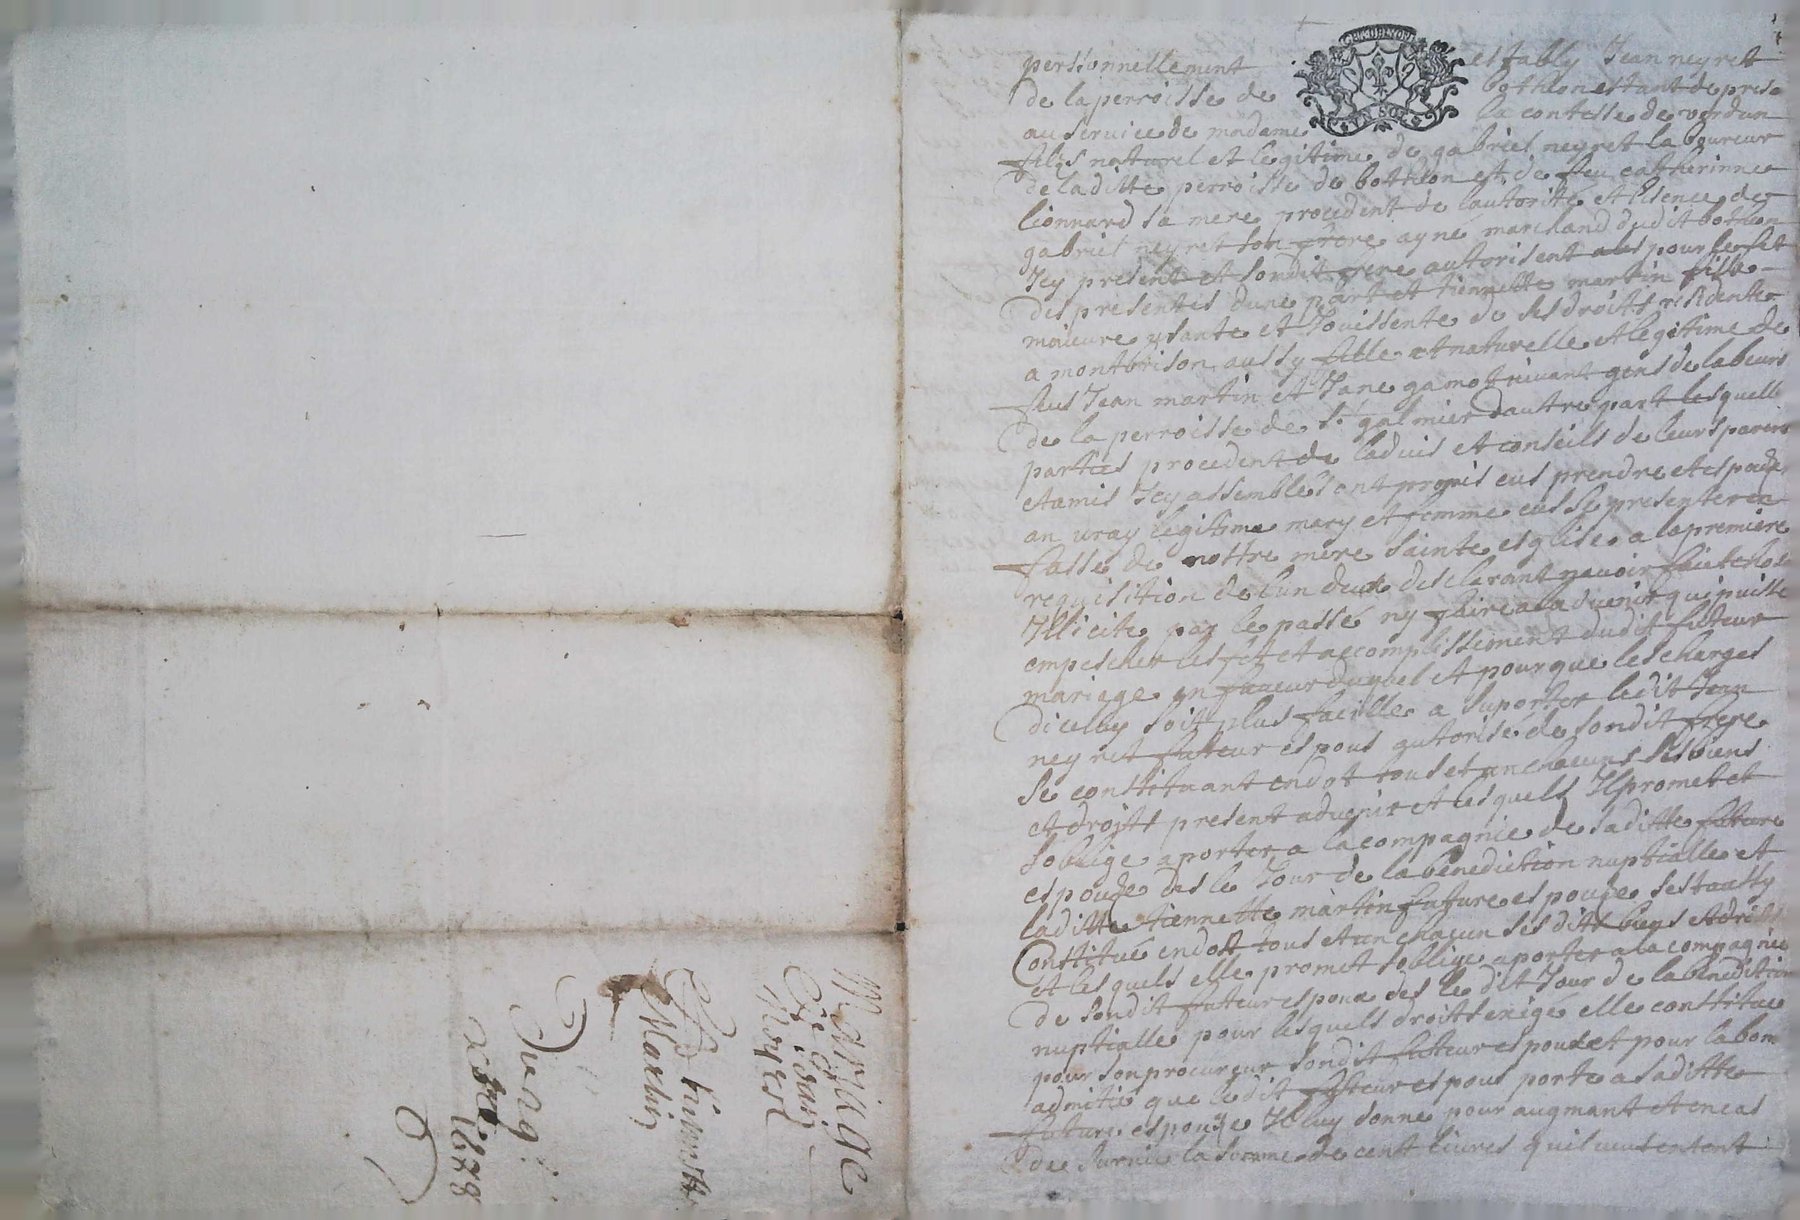 Mariage
de Jean
Neyret
Et tiennette
Martin
Du 29e
xbre 1678
GEN DE LYON
VN SOL
personnellement estably Jean neyrett
de la perroisse de botheon estant de preso
au service de madame la contesse de verdun
fils naturel et legitime de gabriel neyret laboureur
de laditte perroisse de botheon et de feu catherinne
lionnard sa mere procedent de lautorité et lisence de
gabriel neyret son frere ayné marchand dudit botheon
Icy present et sondit frere autorisent pour le fet
des presentes dune part et tiennette martin fille
maieure usante et Jouissente de ses droitts residente
a montbrison aussy fille naturelle et legitime de
feus Jean martin et Jane gamot vivant gens de labeurs
de la perroisse de st galmier dautre part lesquelle
parties procedent de ladvis et conseils de leurs parens
et amis Icy assemblés ont promis eus prendre et espouzer
an vray legitime mary et femme eus se presenter en
fasse de nottre mere sainte esglise a la premiere
requisition de lun deux desclarant navoir faite chose
Illicite par le passé ny faire a ladvenir qui puisse
empescher les fet et accomplissement dudit futeur
mariage en faveur duquel et pour que les charges
dicelluy soit plus facille a suporter ledit Jean
neyret futteur espous autorisé de sondit frere
se constituant en dot tous et un chacuns ses biens
et droitts present advenir et lesquels Il promet et
soblige aporter a la compagnie de saditte future
espouze des le Jour de la benediction nuptialle et
laditte tiennette martin future espouze sest aussy
Constitué en dott tous et un chacun ses dits biens et droitts
et lesquels elle promet soblige aporter a la compagnie
de sondit futeur espoux des le dit Jour de la benedition
nuptialle pour lesquels droitts exigé elle constitue
pour son procureur sondit futteur espoux et pour la bon
admitié que ledit futteur espous porte a saditte
future espouze Il luy donne pour augmant et en cas
de survie la somme de cent livres quil veut entent